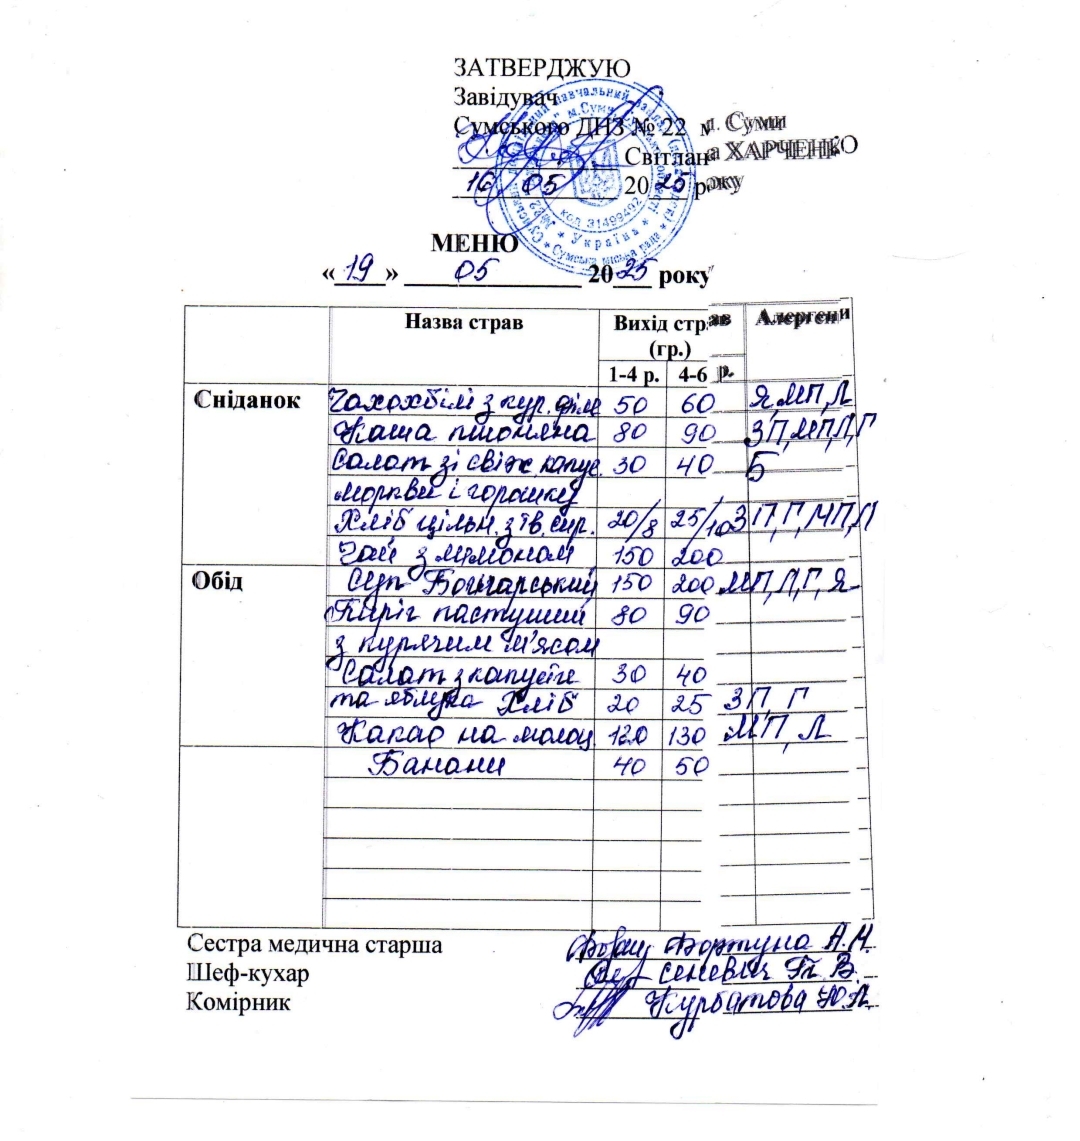 ЗАТВЕРДЖУЮ
Завідувач
Сумського ДНЗ № 22 м. Суми
Світлана ХАРЧЕНКО
16 05 2025 року
код 31499492
* Україна *
МЕНЮ
«19» 05 2025 року
Назва страв Вихід страв (гр.) Алергени
1-4 р. 4-6 р.
Сніданок Чахохбілі з кур. філе 50 60 Я, МП, Л
Каша пшоняна 80 90 ЗП, МП, Л, Г
Салат зі свіж. капус. 30 40 Б
моркви і горошку
Хліб цільн. з тв. сир. 20/8 25/10 ЗП, Г, МП, Л
Чай з лимоном 150 200
Обід Суп Болгарський 150 200 МП, Л, Г, Я
Пиріг пастуший 80 90
з курячим м'ясом
Салат з капусти 30 40
та яблука Хліб 20 25 ЗП, Г
Какао на молоц. 120 130 МП, Л
Банани 40 50
Сестра медична старша А.М.
Шеф-кухар В.
Комірник Курбатова Ю.А.